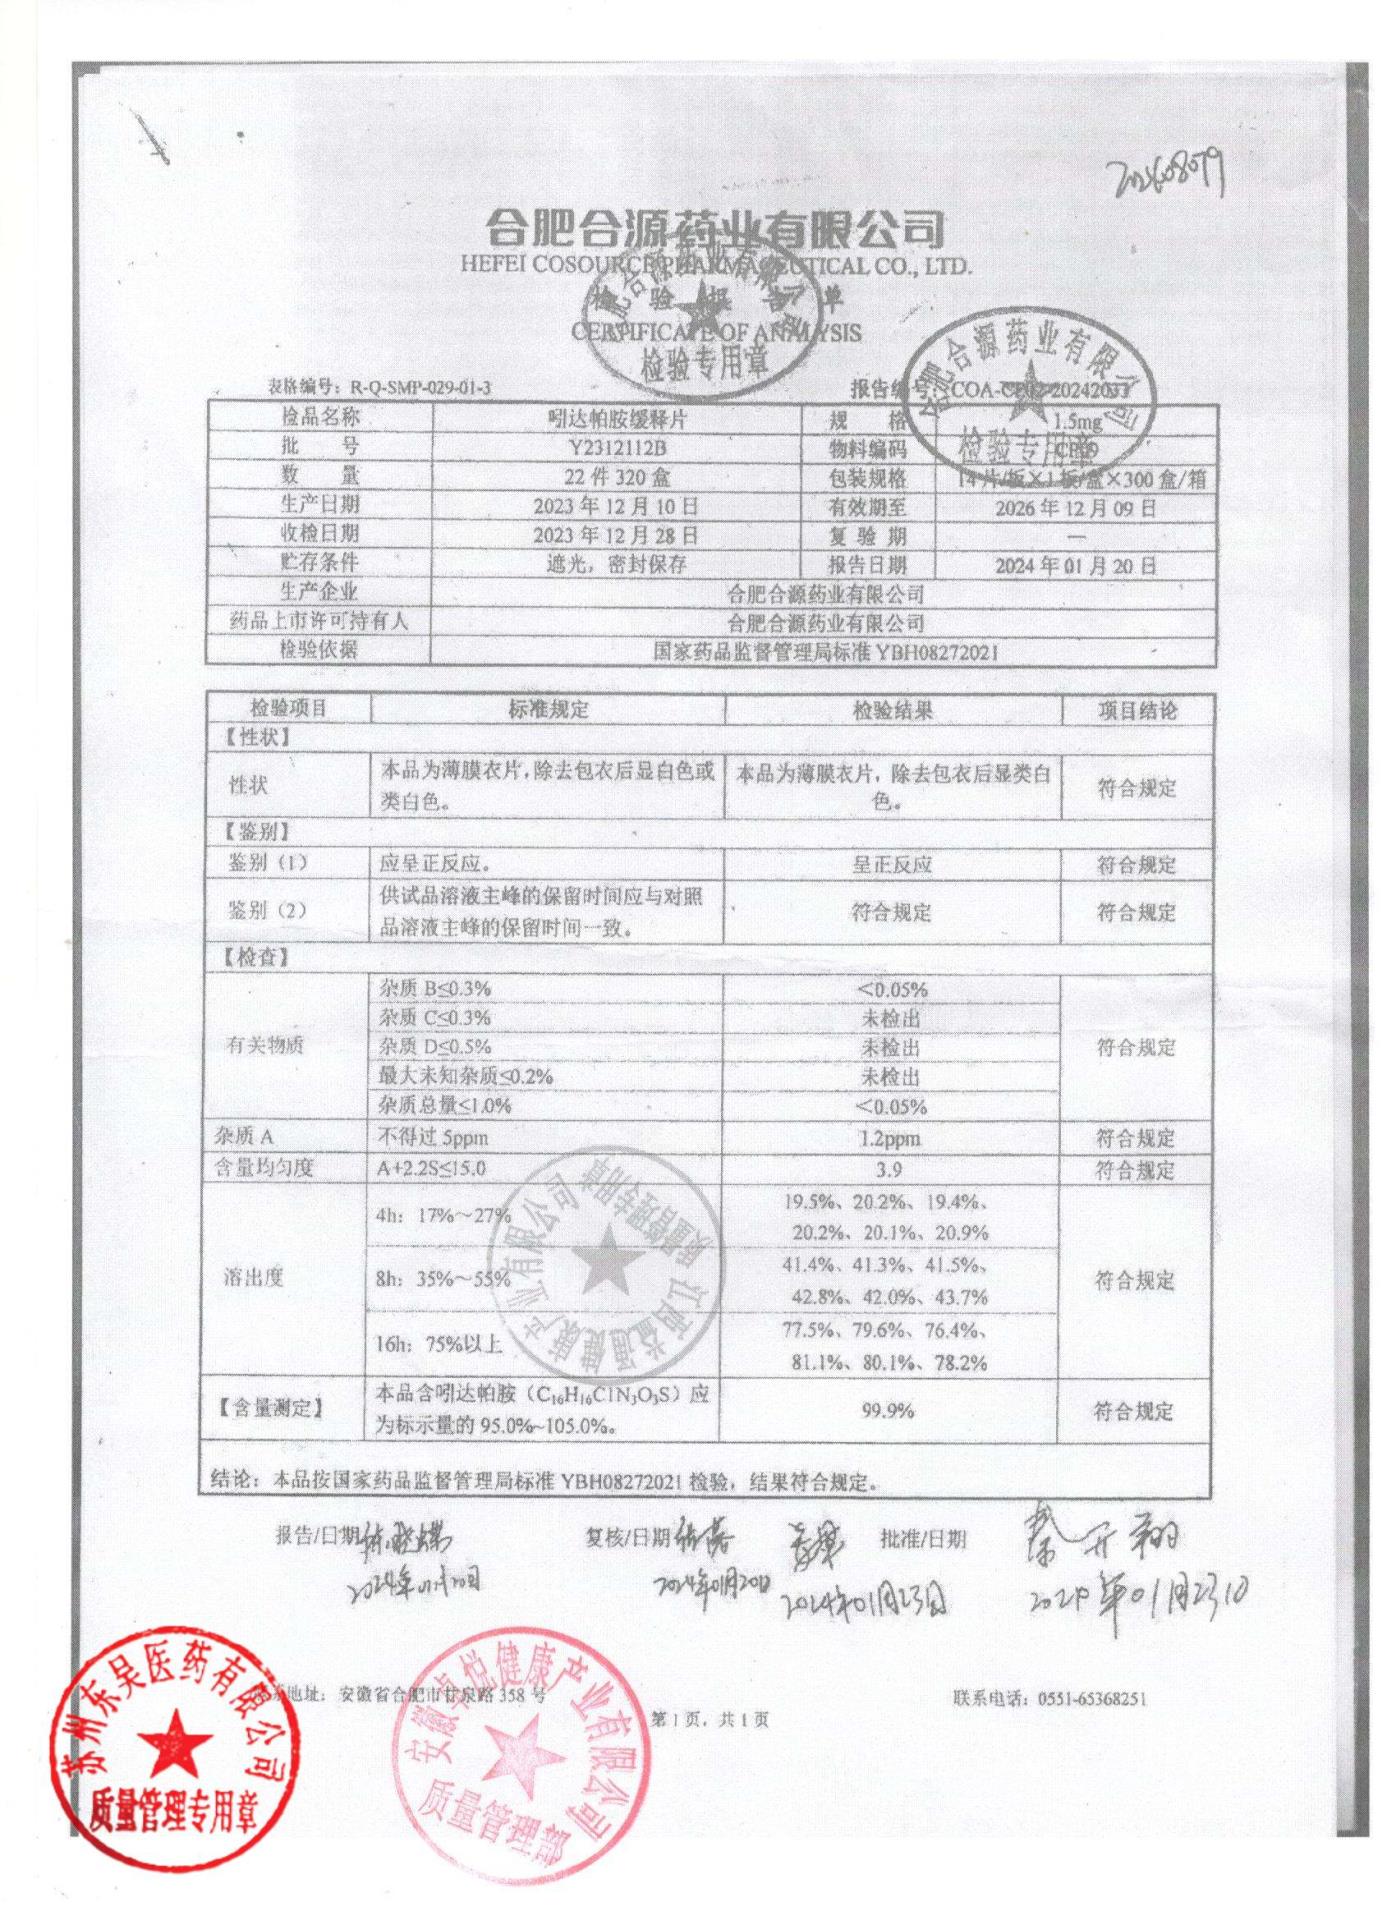 合肥合源药业有限公司
HEFEI COSOURCE PHARMACEUTICAL CO., LTD.
检 验 报 告 单
CERTIFICATE OF ANALYSIS
合肥合源药业有限公司
检验专用章
合肥合源药业有限公司
检验专用章
表格编号：R-Q-SMP-029-01-3 报告编号：
检品名称 吲达帕胺缓释片 规 格 1.5mg
批 号 Y2312112B 物料编码
数 量 22 件 320 盒 包装规格 14 片/板×1 板/盒×300 盒/箱
生产日期 2023 年 12 月 10 日 有效期至 2026 年 12 月 09 日
收检日期 2023 年 12 月 28 日 复 验 期 —
贮存条件 遮光，密封保存 报告日期 2024 年 01 月 20 日
生产企业 合肥合源药业有限公司
药品上市许可持有人 合肥合源药业有限公司
检验依据 国家药品监督管理局标准 YBH08272021
检验项目 标准规定 检验结果 项目结论
【性状】
性状 本品为薄膜衣片，除去包衣后显白色或 本品为薄膜衣片，除去包衣后显类白 符合规定
类白色。 色。
【鉴别】
鉴别（1） 应呈正反应。 呈正反应 符合规定
鉴别（2） 供试品溶液主峰的保留时间应与对照 符合规定 符合规定
品溶液主峰的保留时间一致。
【检查】
有关物质 杂质 B≤0.3% ＜0.05% 符合规定
杂质 C≤0.3% 未检出
杂质 D≤0.5% 未检出
最大未知杂质≤0.2% 未检出
杂质总量≤1.0% ＜0.05%
杂质 A 不得过 5ppm 1.2ppm 符合规定
含量均匀度 A+2.2S≤15.0 3.9 符合规定
溶出度 4h：17%～27% 19.5%、20.2%、19.4%、 符合规定
20.2%、20.1%、20.9%
8h：35%～55% 41.4%、41.3%、41.5%、
42.8%、42.0%、43.7%
16h：75%以上 77.5%、79.6%、76.4%、
81.1%、80.1%、78.2%
江西益通健康产业有限公司
质量管理专用章
【含量测定】 本品含吲达帕胺（C₁₆H₁₆ClN₃O₃S）应 99.9% 符合规定
为标示量的 95.0%~105.0%。
结论：本品按国家药品监督管理局标准 YBH08272021 检验，结果符合规定。
报告/日期 复核/日期 批准/日期 秦开翔
2024年01月20日 2024年01月20日 2024年01月23日 2024年01月23日
联系地址：安徽省合肥市甘泉路 358 号 联系电话：0551-65368251
第 1 页，共 1 页
苏州东吴医药有限公司
质量管理专用章
安徽卓悦健康产业有限公司
质量管理部